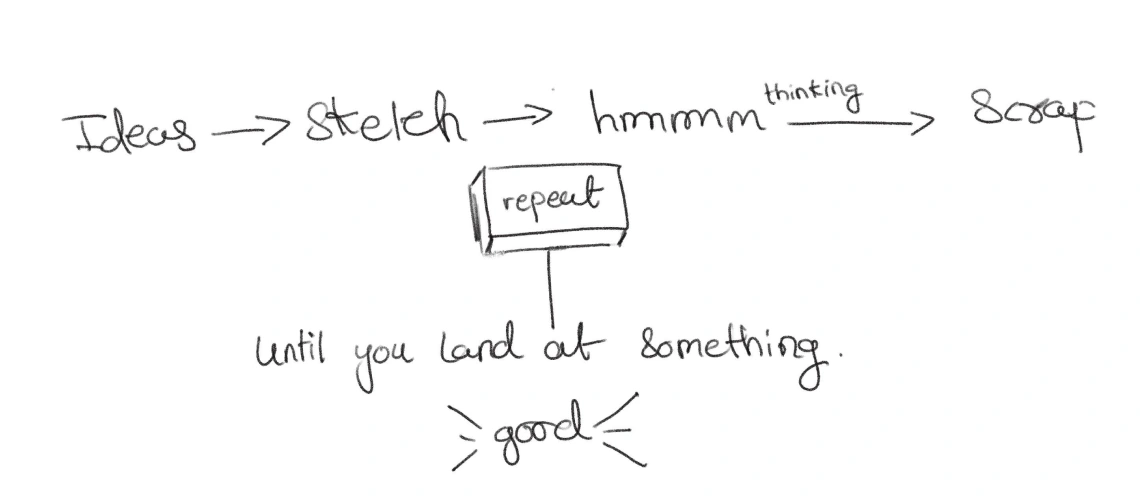 Ideas → Sketch → hmmmm thinking → Scrap
repeat
until you land at something.
good